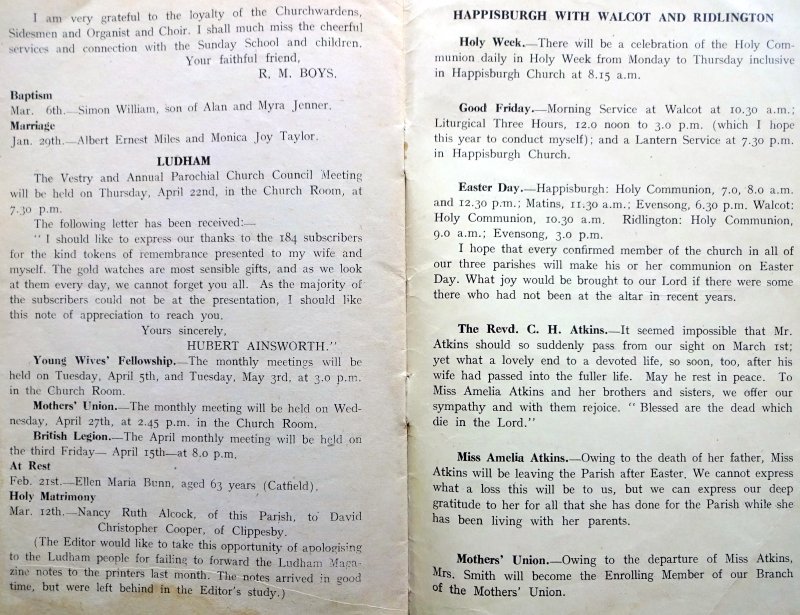 I am very grateful to the loyalty of the Churchwardens,
Sidesmen and Organist and Choir. I shall much miss the cheerful
services and connection with the Sunday School and children.
Your faithful friend,
R. M. BOYS.
Baptism
Mar. 6th.—Simon William, son of Alan and Myra Jenner.
Marriage
Jan. 29th.—Albert Ernest Miles and Monica Joy Taylor.
LUDHAM
The Vestry and Annual Parochial Church Council Meeting
will be held on Thursday, April 22nd, in the Church Room, at
7.30 p.m.
The following letter has been received:—
" I should like to express our thanks to the 184 subscribers
for the kind tokens of remembrance presented to my wife and
myself. The gold watches are most sensible gifts, and as we look
at them every day, we cannot forget you all. As the majority of
the subscribers could not be at the presentation, I should like
this note of appreciation to reach you.
Yours sincerely,
HUBERT AINSWORTH."
Young Wives' Fellowship.—The monthly meetings will be
held on Tuesday, April 5th, and Tuesday, May 3rd, at 3.0 p.m.
in the Church Room.
Mothers' Union.—The monthly meeting will be held on Wed-
nesday, April 27th, at 2.45 p.m. in the Church Room.
British Legion.—The April monthly meeting will be held on
the third Friday— April 15th—at 8.0 p.m.
At Rest
Feb. 21st.—Ellen Maria Bunn, aged 63 years (Catfield).
Holy Matrimony
Mar. 12th.—Nancy Ruth Alcock, of this Parish, to David
Christopher Cooper, of Clippesby.
(The Editor would like to take this opportunity of apologising
to the Ludham people for failing to forward the Ludham Maga-
zine notes to the printers last month. The notes arrived in good
time, but were left behind in the Editor's study.)
HAPPISBURGH WITH WALCOT AND RIDLINGTON
Holy Week.—There will be a celebration of the Holy Com-
munion daily in Holy Week from Monday to Thursday inclusive
in Happisburgh Church at 8.15 a.m.
Good Friday.—Morning Service at Walcot at 10.30 a.m.;
Liturgical Three Hours, 12.0 noon to 3.0 p.m. (which I hope
this year to conduct myself); and a Lantern Service at 7.30 p.m.
in Happisburgh Church.
Easter Day.—Happisburgh: Holy Communion, 7.0, 8.0 a.m.
and 12.30 p.m.; Matins, 11.30 a.m.; Evensong, 6.30 p.m. Walcot:
Holy Communion, 10.30 a.m. Ridlington: Holy Communion,
9.0 a.m.; Evensong, 3.0 p.m.
I hope that every confirmed member of the church in all of
our three parishes will make his or her communion on Easter
Day. What joy would be brought to our Lord if there were some
there who had not been at the altar in recent years.
The Revd. C. H. Atkins.—It seemed impossible that Mr.
Atkins should so suddenly pass from our sight on March 1st;
yet what a lovely end to a devoted life, so soon, too, after his
wife had passed into the fuller life. May he rest in peace. To
Miss Amelia Atkins and her brothers and sisters, we offer our
sympathy and with them rejoice. " Blessed are the dead which
die in the Lord."
Miss Amelia Atkins.—Owing to the death of her father, Miss
Atkins will be leaving the Parish after Easter. We cannot express
what a loss this will be to us, but we can express our deep
gratitude to her for all that she has done for the Parish while she
has been living with her parents.
Mothers' Union.—Owing to the departure of Miss Atkins,
Mrs. Smith will become the Enrolling Member of our Branch
of the Mothers' Union.